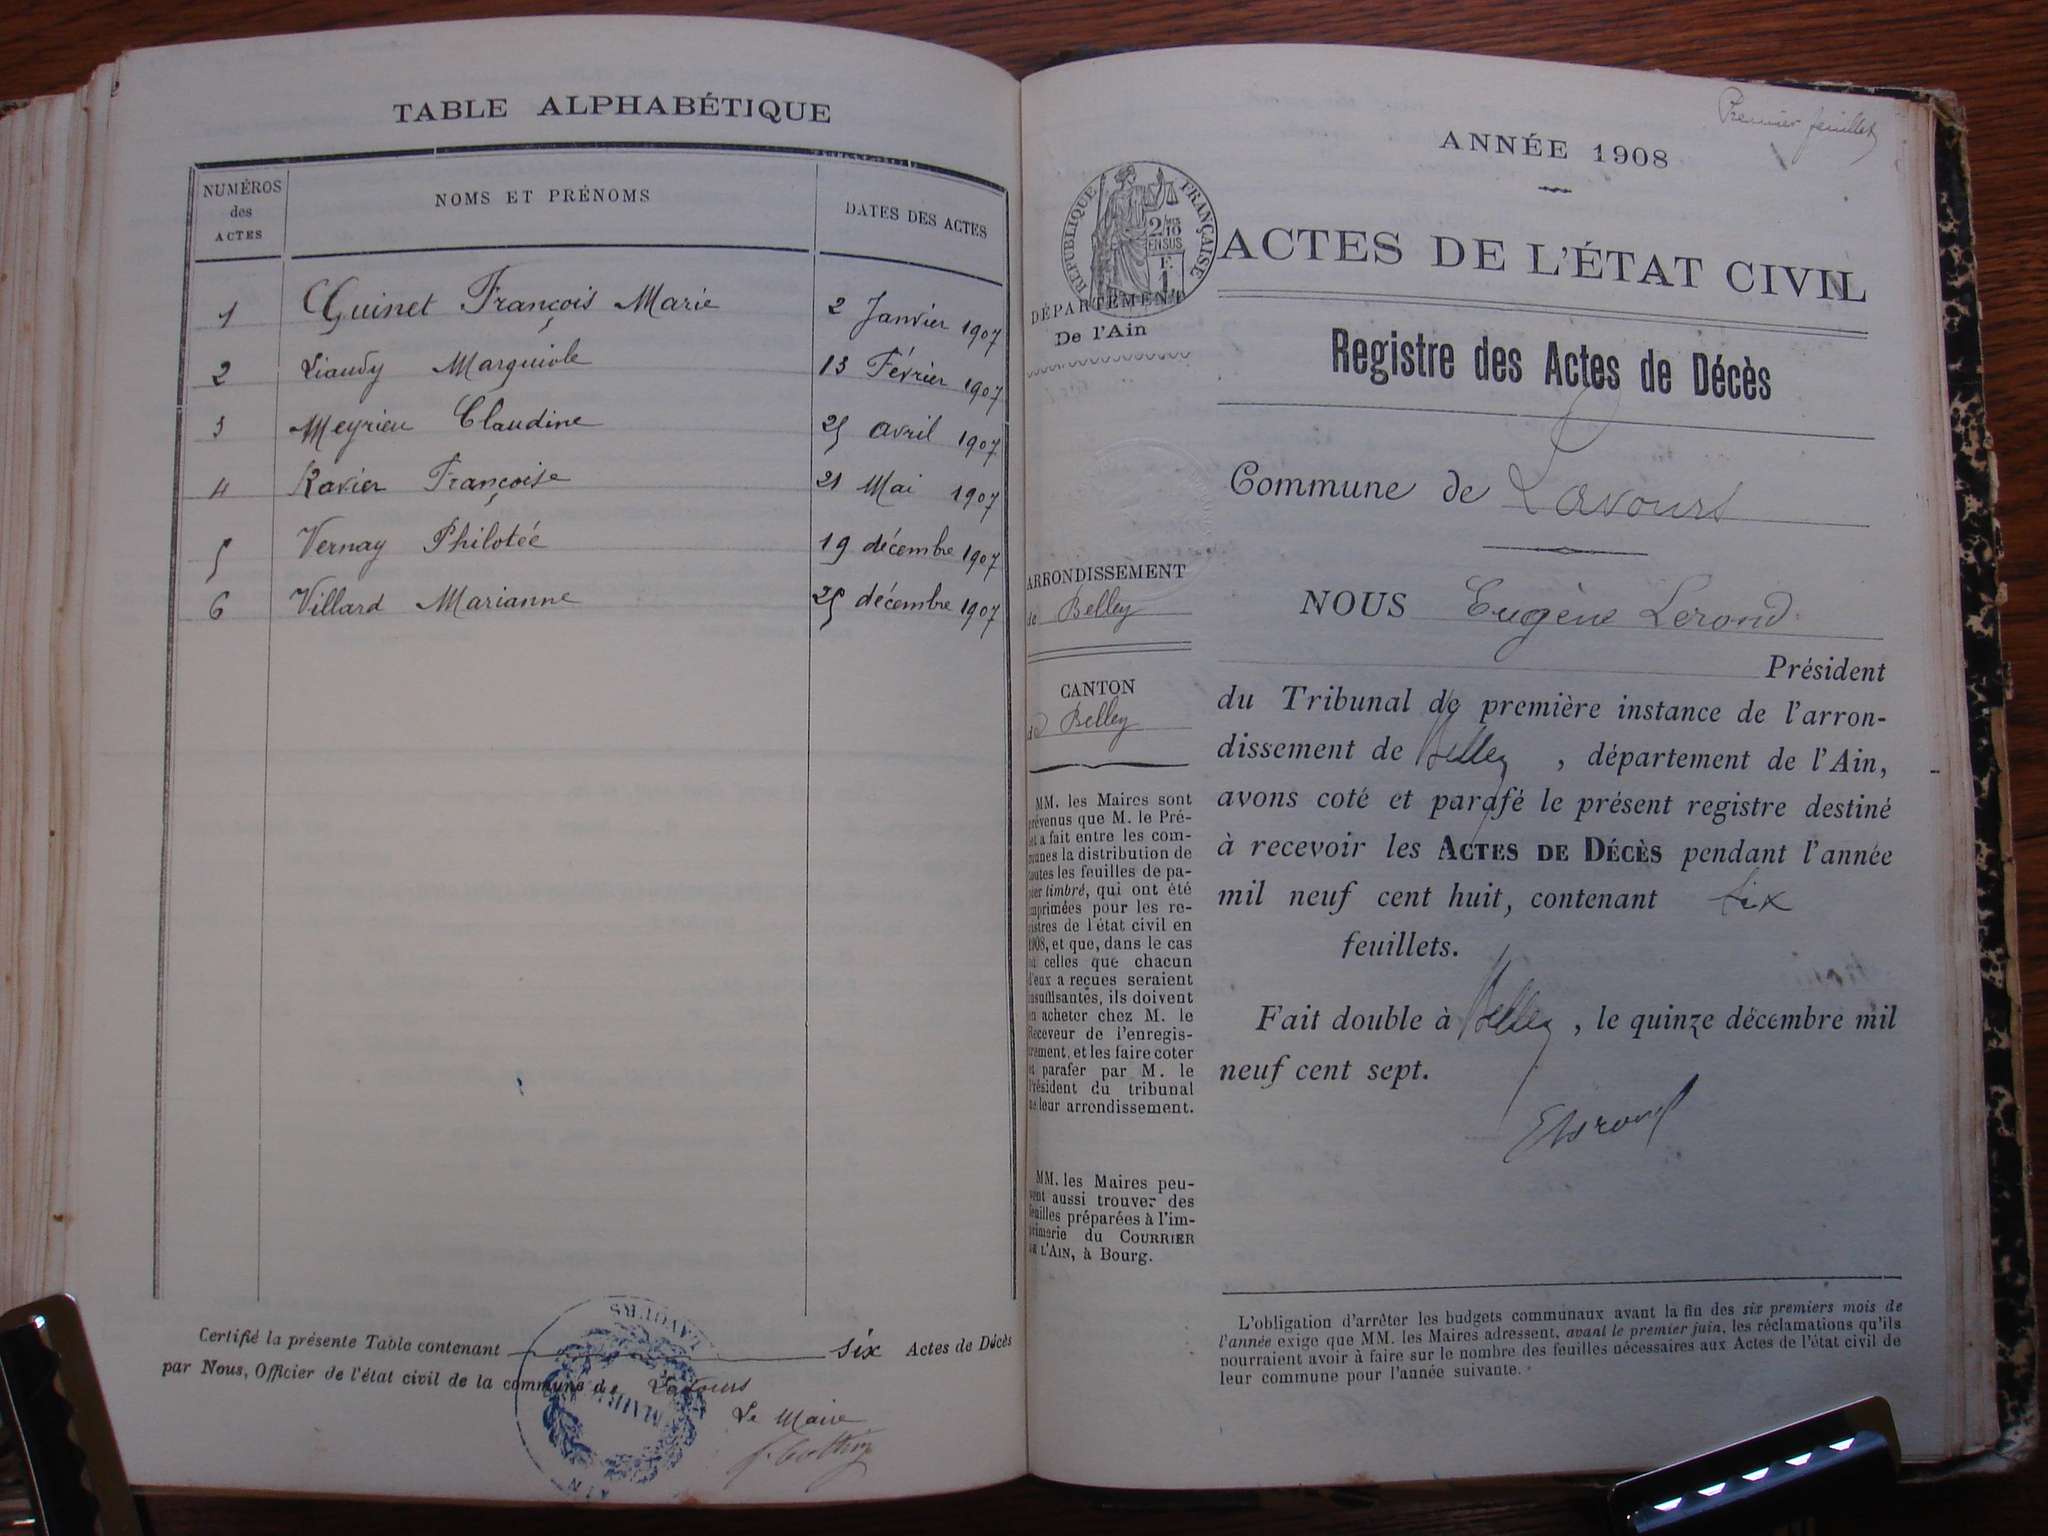 TABLE ALPHABÉTIQUE
NUMÉROS des ACTES NOMS ET PRÉNOMS DATES DES ACTES
1 Guinet François Marie 2 Janvier 1907
2 Liaudy 13 Février 1907
3 Meyrieu Claudine 25 avril 1907
4 Ravier Françoise 21 Mai 1907
5 Vernay Philotée 19 décembre 1907
6 Villard Marianne 25 décembre 1907
Certifié la présente Table contenant six Actes de Décès
par Nous, Officier de l'état civil de la commune de Lavours
Le Maire
LAVOURS
MAIRIE
AIN
Premier feuillet
ANNÉE 1908
RÉPUBLIQUE FRANÇAISE
2/10
EN SUS
F.
1
ACTES DE L'ÉTAT CIVIL
DÉPARTEMENT
De l'Ain
Registre des Actes de Décès
Commune de Lavours
ARRONDISSEMENT
de Belley
CANTON
de Belley
MM. les Maires sont
prévenus que M. le Pré-
fet a fait entre les com-
munes la distribution de
toutes les feuilles de pa-
pier timbré, qui ont été
imprimées pour les re-
gistres de l'état civil en
1908, et que, dans le cas
où celles que chacun
d'eux a reçues seraient
insuffisantes, ils doivent
en acheter chez M. le
Receveur de l'enregis-
trement, et les faire coter
et parafer par M. le
Président du tribunal
de leur arrondissement.
MM. les Maires peu-
vent aussi trouver des
feuilles préparées à l'im-
primerie du COURRIER
DE L'AIN, à Bourg.
NOUS Eugène Lerond
Président
du Tribunal de première instance de l'arron-
dissement de Belley, département de l'Ain,
avons coté et parafé le présent registre destiné
à recevoir les ACTES DE DÉCÈS pendant l'année
mil neuf cent huit, contenant six
feuillets.
Fait double à Belley, le quinze décembre mil
neuf cent sept.
ELerond
L'obligation d'arrêter les budgets communaux avant la fin des six premiers mois de
l'année exige que MM. les Maires adressent, avant le premier juin, les réclamations qu'ils
pourraient avoir à faire sur le nombre des feuilles nécessaires aux Actes de l'état civil de
leur commune pour l'année suivante.